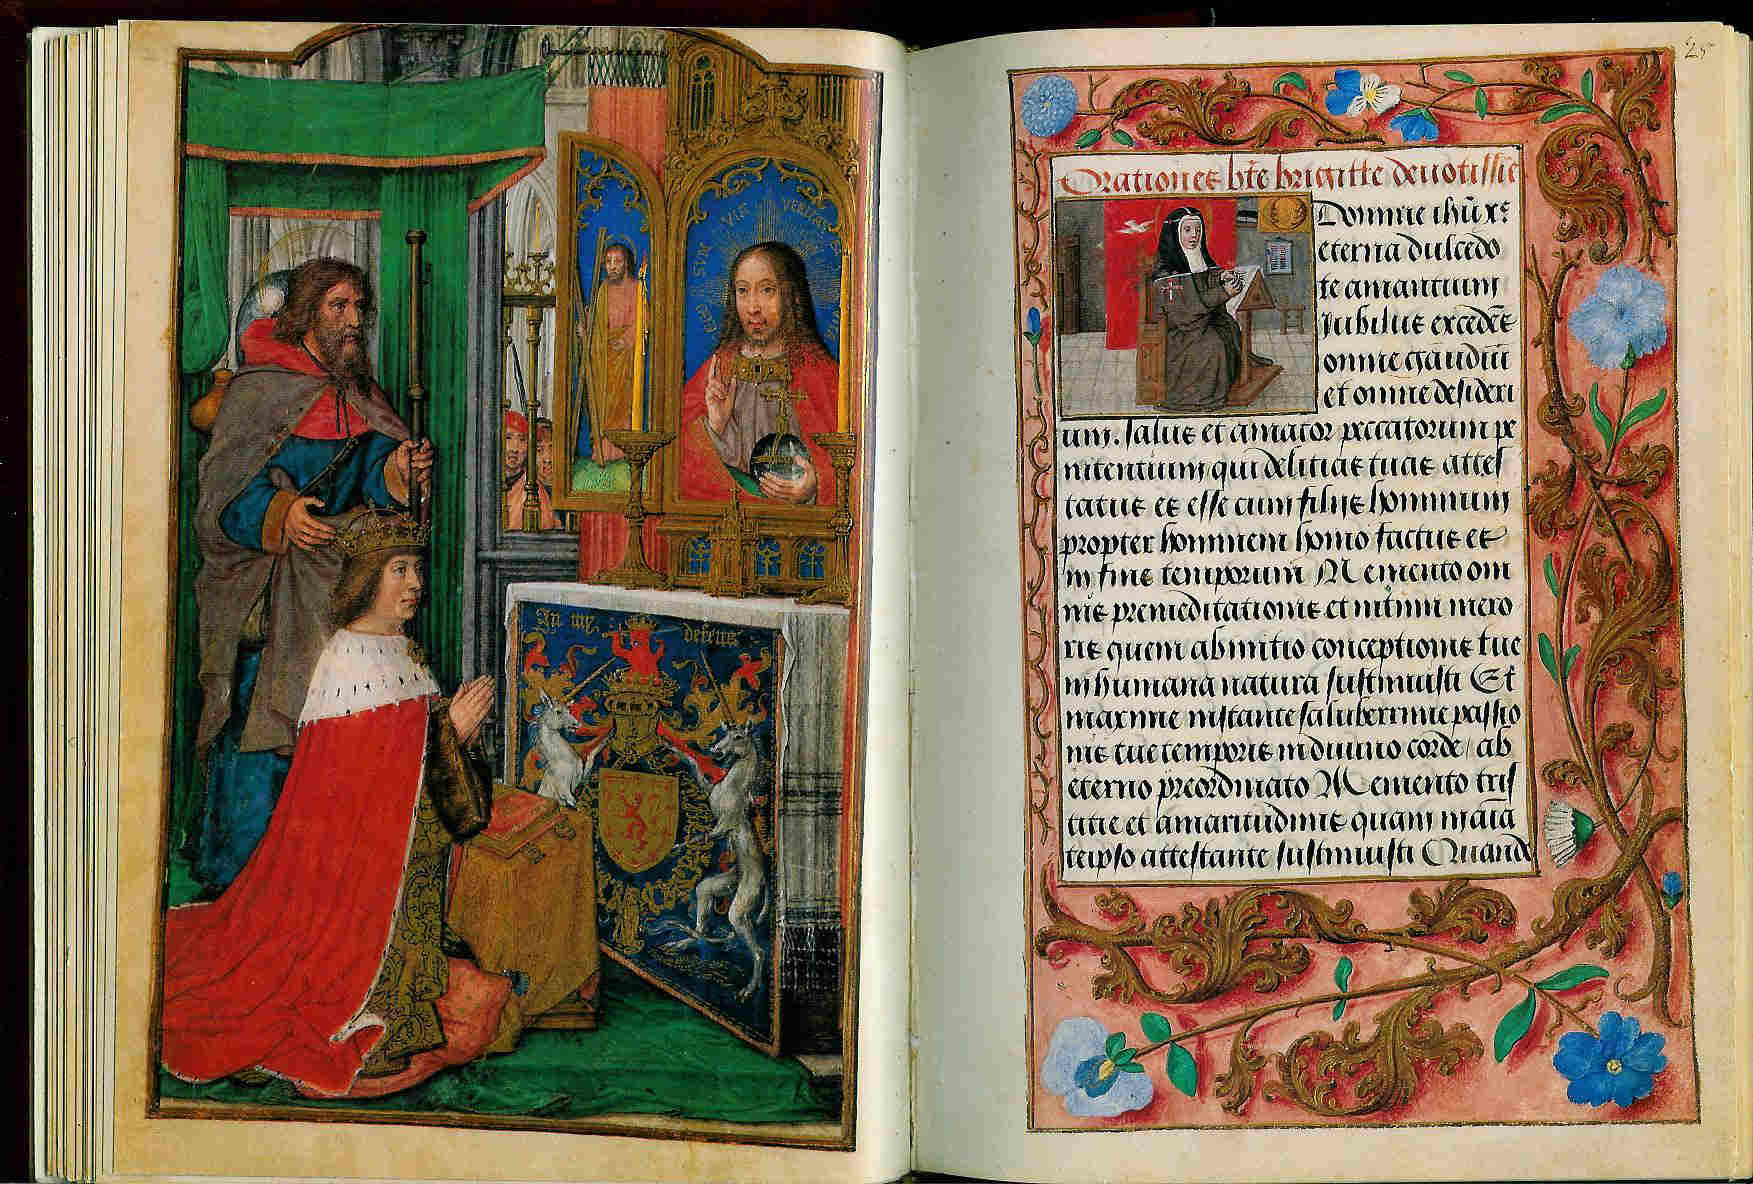 EGO SVM VIA VERITAS
In my defens
25
Orationes bte brigitte deuotissie
Domine ihu xe
eterna dulcedo
te amantium
Iubilus excedes
omne gaudiu
et omne desideri
um. salus et amator peccatorum pe
nitentium qui delitias tuas attes
tatus es esse cum filiis hominum
propter hominem homo factus es
in fine temporum Memento om
nis premeditationis et intimi mero
ris quem ab initio conceptionis tue
in humana natura sustinuisti Et
maxime instante saluberrime passio
nis tue temporis in diuino corde ab
eterno preordinato Memento tris
titie et amaritudinis quam in aia
teipso attestante sustinuisti Quando